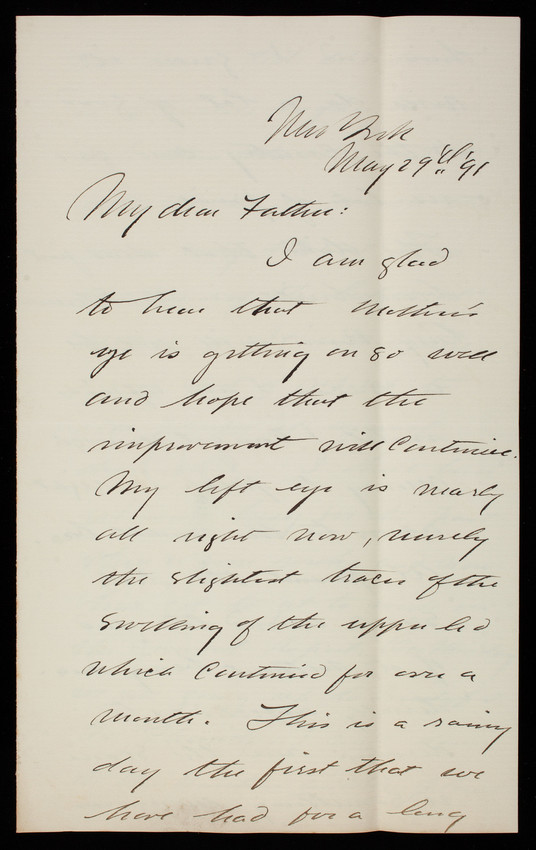 New York
May 29th '91
My dear Father:
I am glad
to hear that Mother's
eye is getting on so well
and hope that the
improvement will continue.
My left eye is nearly
all right now, merely
the slightest traces of the
swelling of the upper lid
which continued for over a
month. This is a rainy
day the first that we
have had for a long